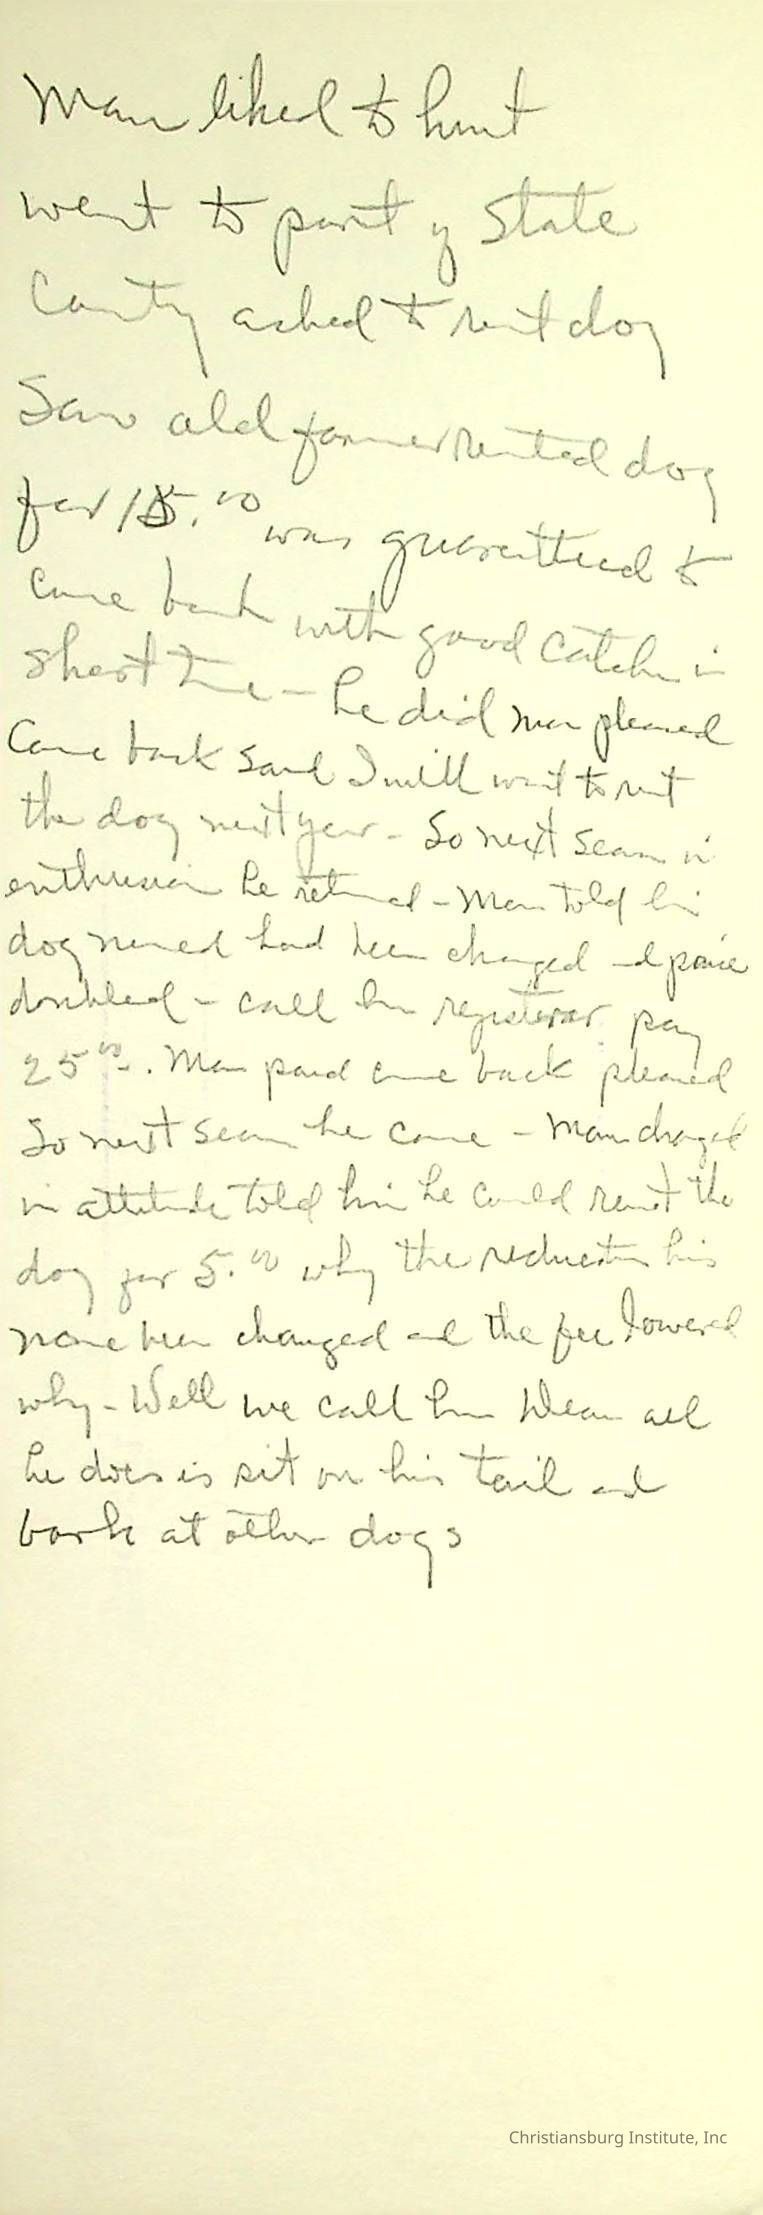 Man liked to hunt
went to part of State
County asked to rent dog
Saw old farmer rented dog
for 15.00 was guaranteed to
come back with good catch in
short time - he did man pleased
Came back said I will want to rent
the dog next year - So next season in
enthusiasm he returned - Man told him
dog named had been changed and price
doubled - call him registerar pay
25.00. Man paid came back pleased
So next season he came - Man changed
in attitude told him he could rent the
dog for 5.00 why the reduction his
name been changed and the fee lowered
why - Well we call him Dean all
he does is sit on his tail and
bark at other dogs
Christiansburg Institute, Inc